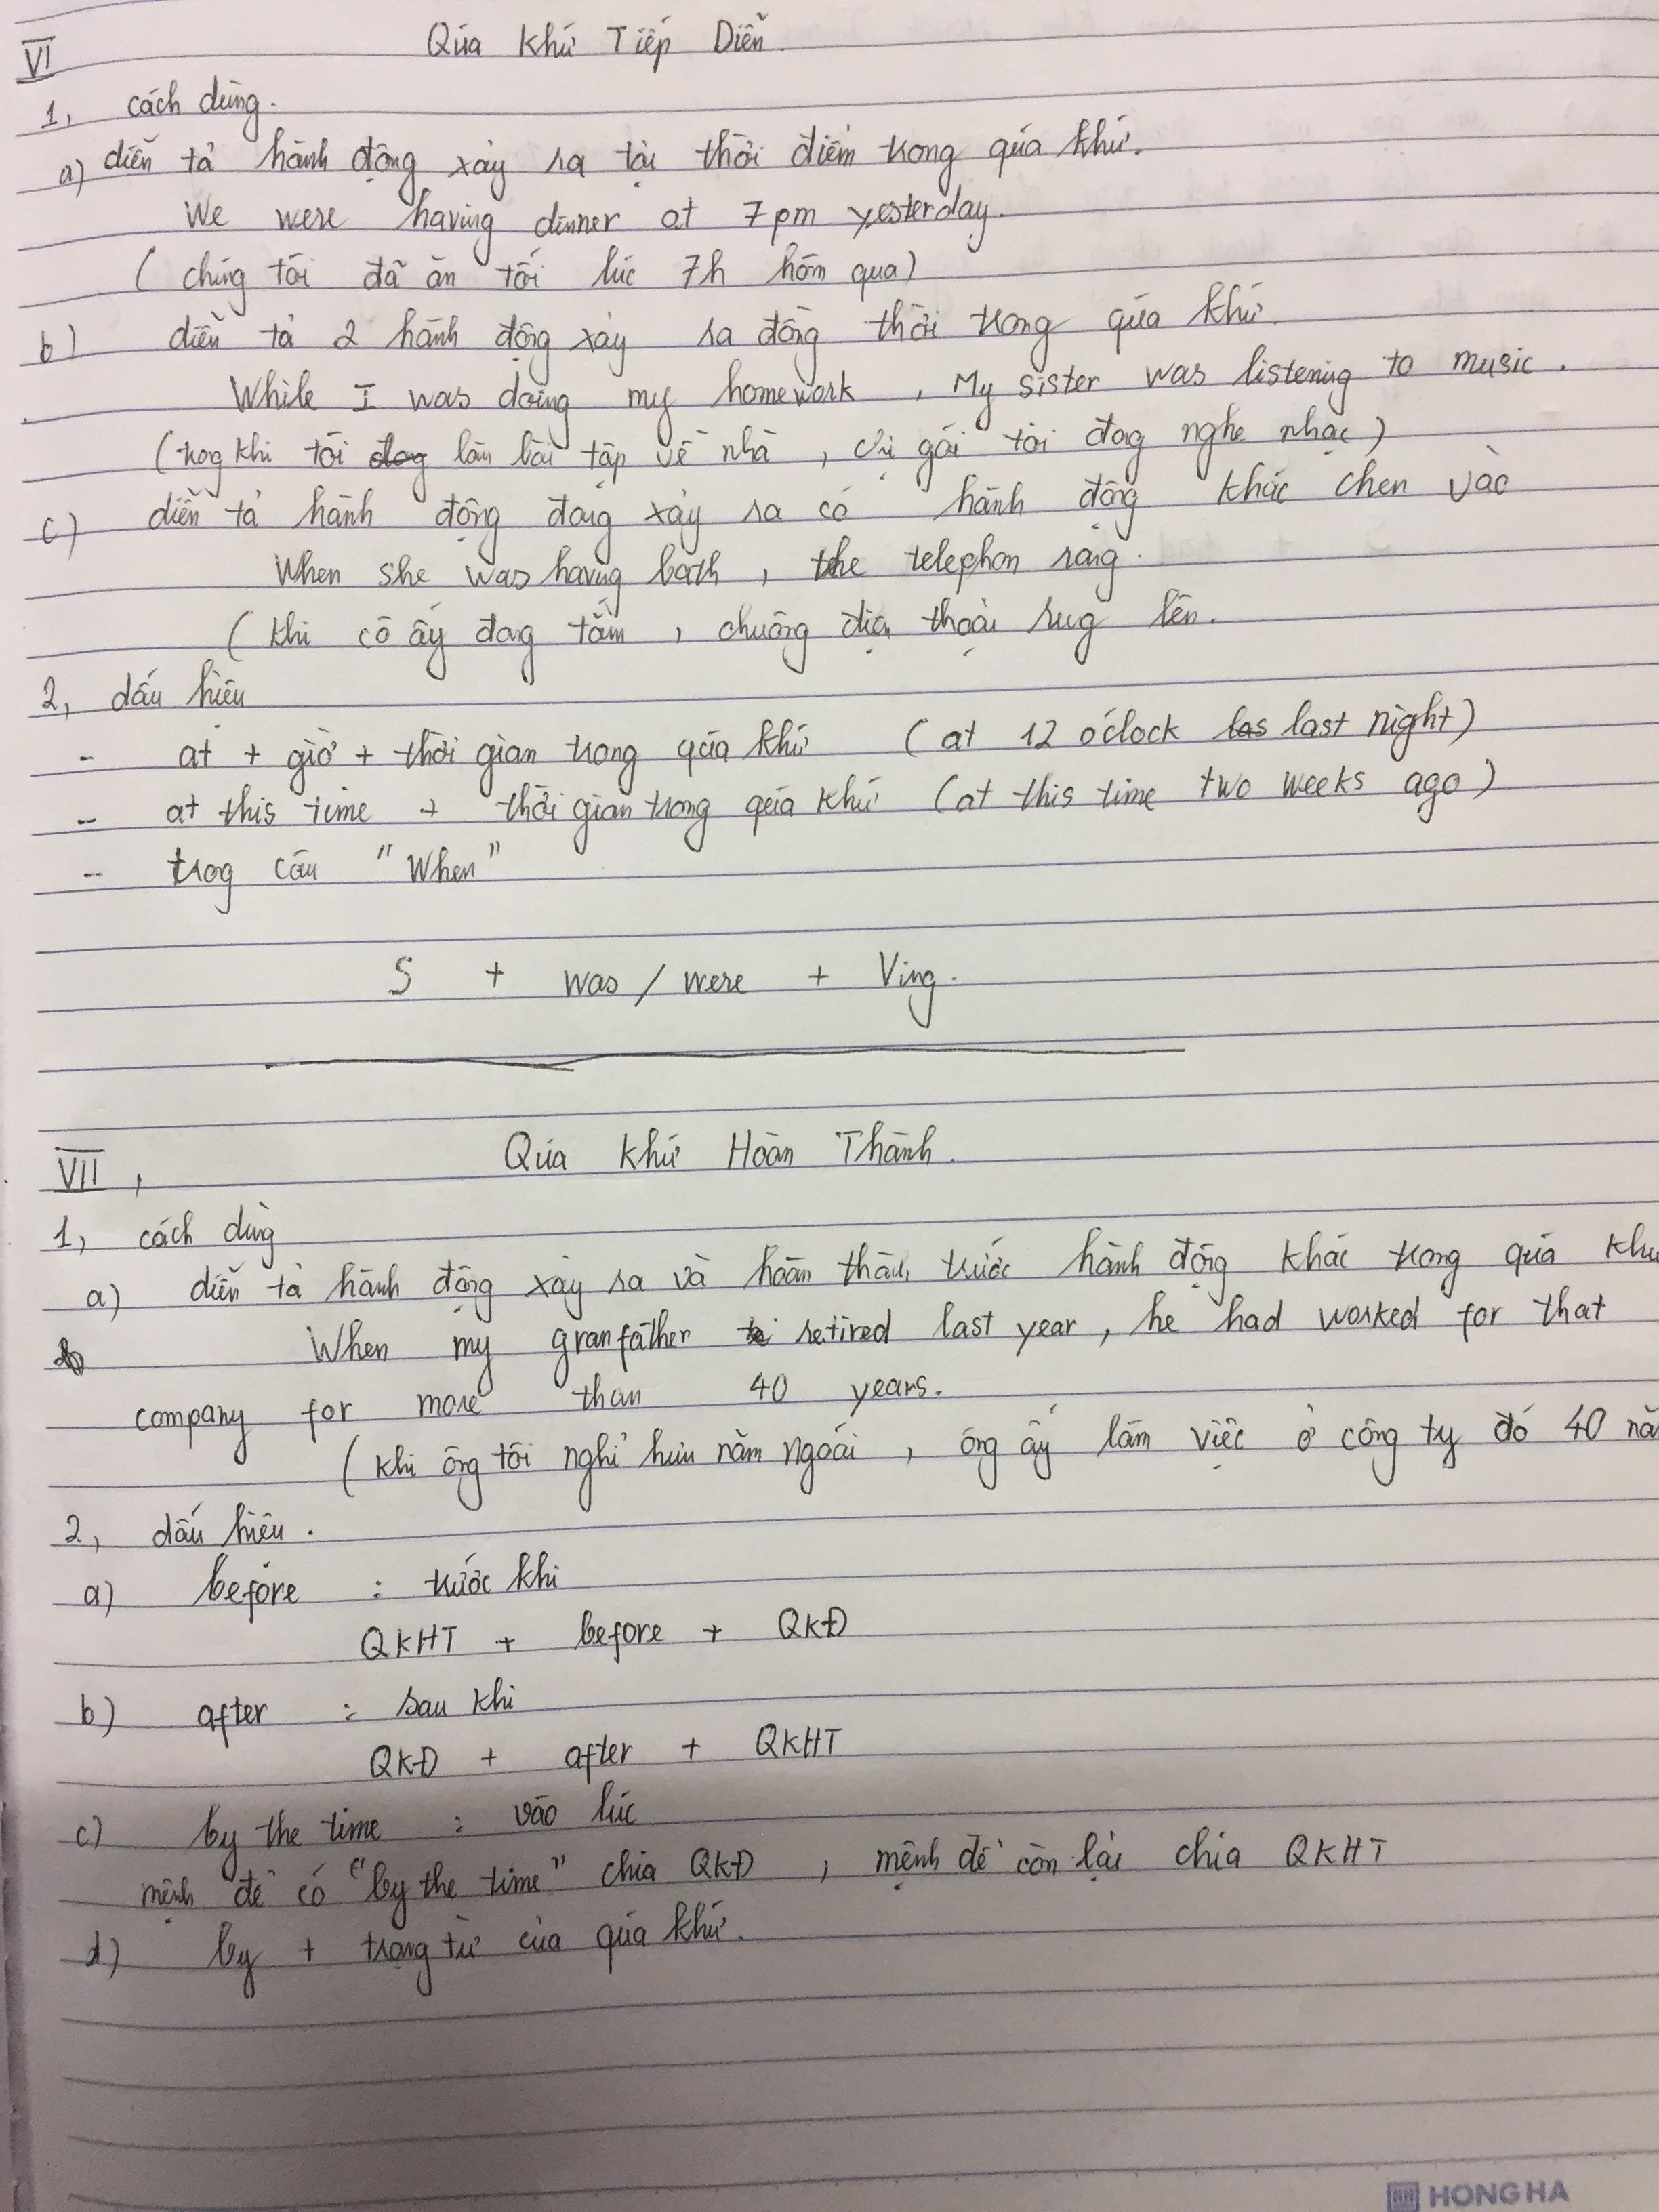 VI Qúa khứ Tiếp Diễn
1, cách dùng.
a) diễn tả hành động xảy ra tại thời điểm trong qúa khứ.
We were having dinner at 7pm yesterday.
( chúng tôi đã ăn tối lúc 7h hôm qua)
b) diễn tả 2 hành động xảy ra đồng thời trong qúa khứ.
While I was doing my homework , My sister was listening to music .
(trog khi tôi đag làm bài tập về nhà , chị gái tôi đag nghe nhạc)
c) diễn tả hành động đang xảy ra có hành động khác chen vào
When she was having bath , the telephon rang.
( khi cô ấy đag tắm , chuông điện thoại rug lên.
2, dấu hiệu
- at + giờ + thời gian trong qúa khứ ( at 12 o'clock las last night)
- at this time + thời gian trong qúa khứ (at this time two weeks ago)
- trog câu "When"
S + was / were + Ving.
VII , Qúa khứ Hoàn Thành.
1, cách dùg
a) diễn tả hành động xảy ra và hoàn thành trước hành động khác trong qúa khứ
When my granfather retired last year, he had worked for that
company for more than 40 years.
( khi ông tôi nghỉ hưu năm ngoái , ông ấy làm việc ở công ty đó 40 nă
2, dấu hiệu .
a) before : trước khi
QKHT + before + QKĐ
b) after : sau khi
QKĐ + after + QKHT
c) by the time : vào lúc
mệnh đề có "by the time" chia QKĐ , mệnh đề còn lại chia QKHT
d) by + trạng từ của qúa khứ.
HONG HA